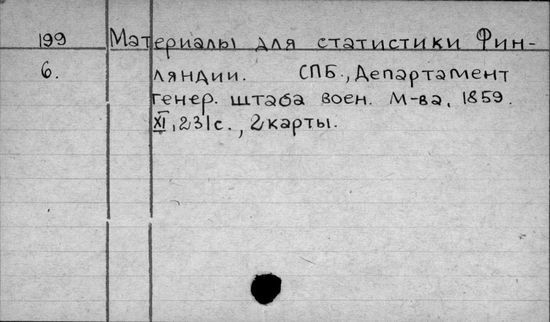 199 Материалы для статистики Фин-
6. ляндии. СПБ., Департамент
генер. штаба воен. М-ва, 1859.
XI, 231с., 2 карты.